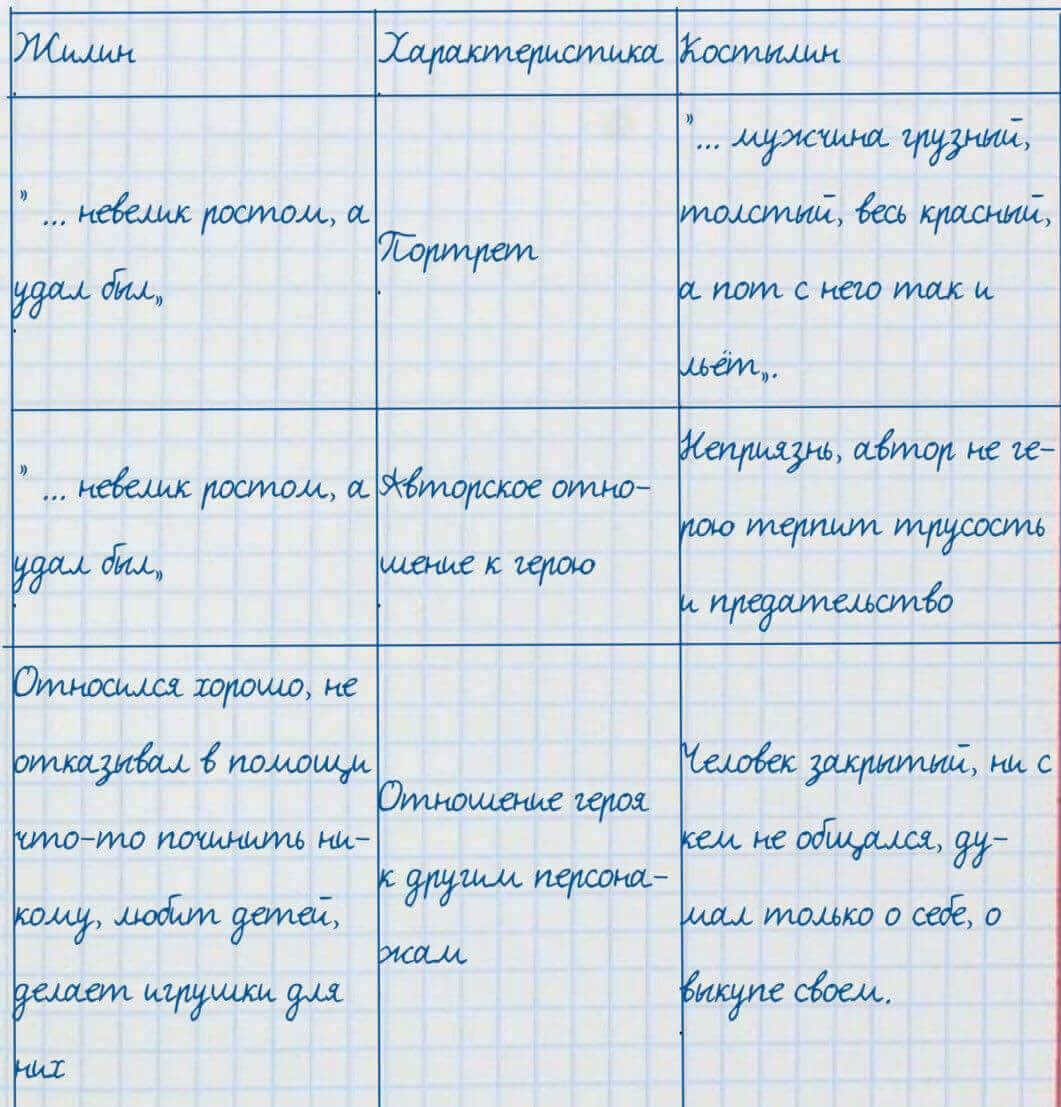 Жилин
Характеристика
Костылин
" ... невелик ростом, а
удал был„
Портрет
"... мужчина грузный,
толстый, весь красный,
а пот с него так и
льёт„.
" ... невелик ростом, а
удал был„
Авторское отно-
шение к герою
Неприязнь, автор не ге-
рою терпит трусость
и предательство
Относился хорошо, не
отказывал в помощи
что-то починить ни-
кому, любит детей,
делает игрушки для
них
Отношение героя
к другим персона-
жам
Человек закрытый, ни с
кем не общался, ду-
мал только о себе, о
выкупе своем.